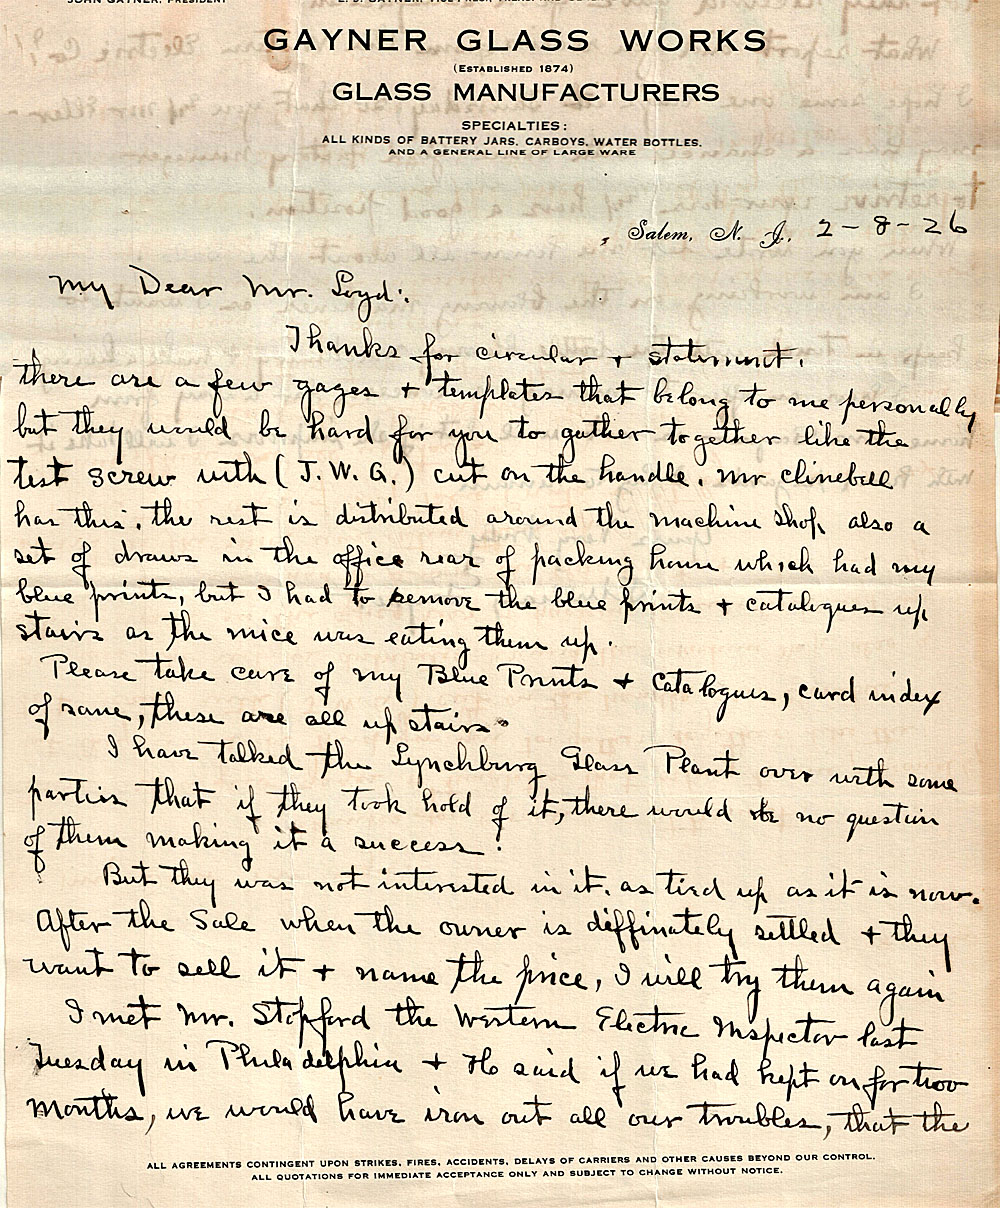 JOHN GAYNER, PRESIDENT
GAYNER GLASS WORKS
(ESTABLISHED 1874)
GLASS MANUFACTURERS
SPECIALTIES:
ALL KINDS OF BATTERY JARS, CARBOYS, WATER BOTTLES,
AND A GENERAL LINE OF LARGE WARE
Salem, N. J. 2-8-26
My Dear Mr. Loyd:
Thanks for circular + statement.
there are a few gages + templates that belong to me personally
but they would be hard for you to gather together like the
test screw with (J.W.G.) cut on the handle. Mr Clinebell
has this, the rest is distributed around the machine shop, also a
set of draws in the office rear of packing house which had my
blue prints, but I had to remove the blue prints + catalogues up
stairs as the mice was eating them up.
Please take care of my Blue Prints + Catalogues, card index
of same, these are all up stairs.
I have talked the Lynchburg Glass Plant over with some
parties that if they took hold of it, there would be no question
of them making it a success!
But they was not interested in it. as tied up as it is now.
After the Sale when the owner is deffinately settled + they
want to sell it + name the price, I will try them again
I met Mr. Stopford the Western Electric Inspector last
Tuesday in Philadelphia + He said if we had kept on for two
months, we would have iron out all our troubles, that the
ALL AGREEMENTS CONTINGENT UPON STRIKES, FIRES, ACCIDENTS, DELAYS OF CARRIERS AND OTHER CAUSES BEYOND OUR CONTROL.
ALL QUOTATIONS FOR IMMEDIATE ACCEPTANCE ONLY AND SUBJECT TO CHANGE WITHOUT NOTICE.